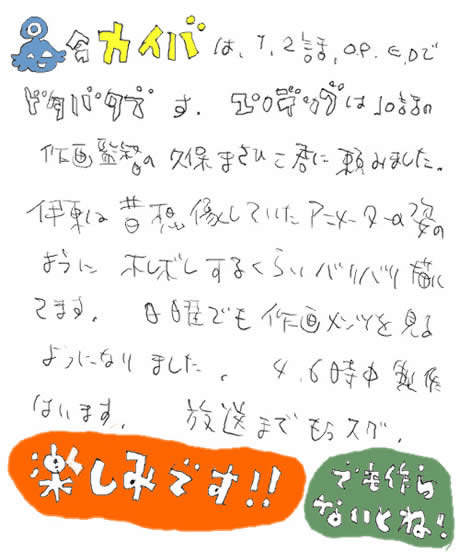 今カイバは、1,2話,O.P.E.Dで
ドタバタです。エンディングは10話の
作画監督の久保まさひこ君に頼みました。
伊東は昔想像していたアニメーターの姿の
ようにホレボレするくらいバリバリ描い
てます。日曜でも作画メンツを見る
ようになりました。4,6時中製作
はいます。放送までもうスグ。
楽しみです!!
でも作ら
ないとね!